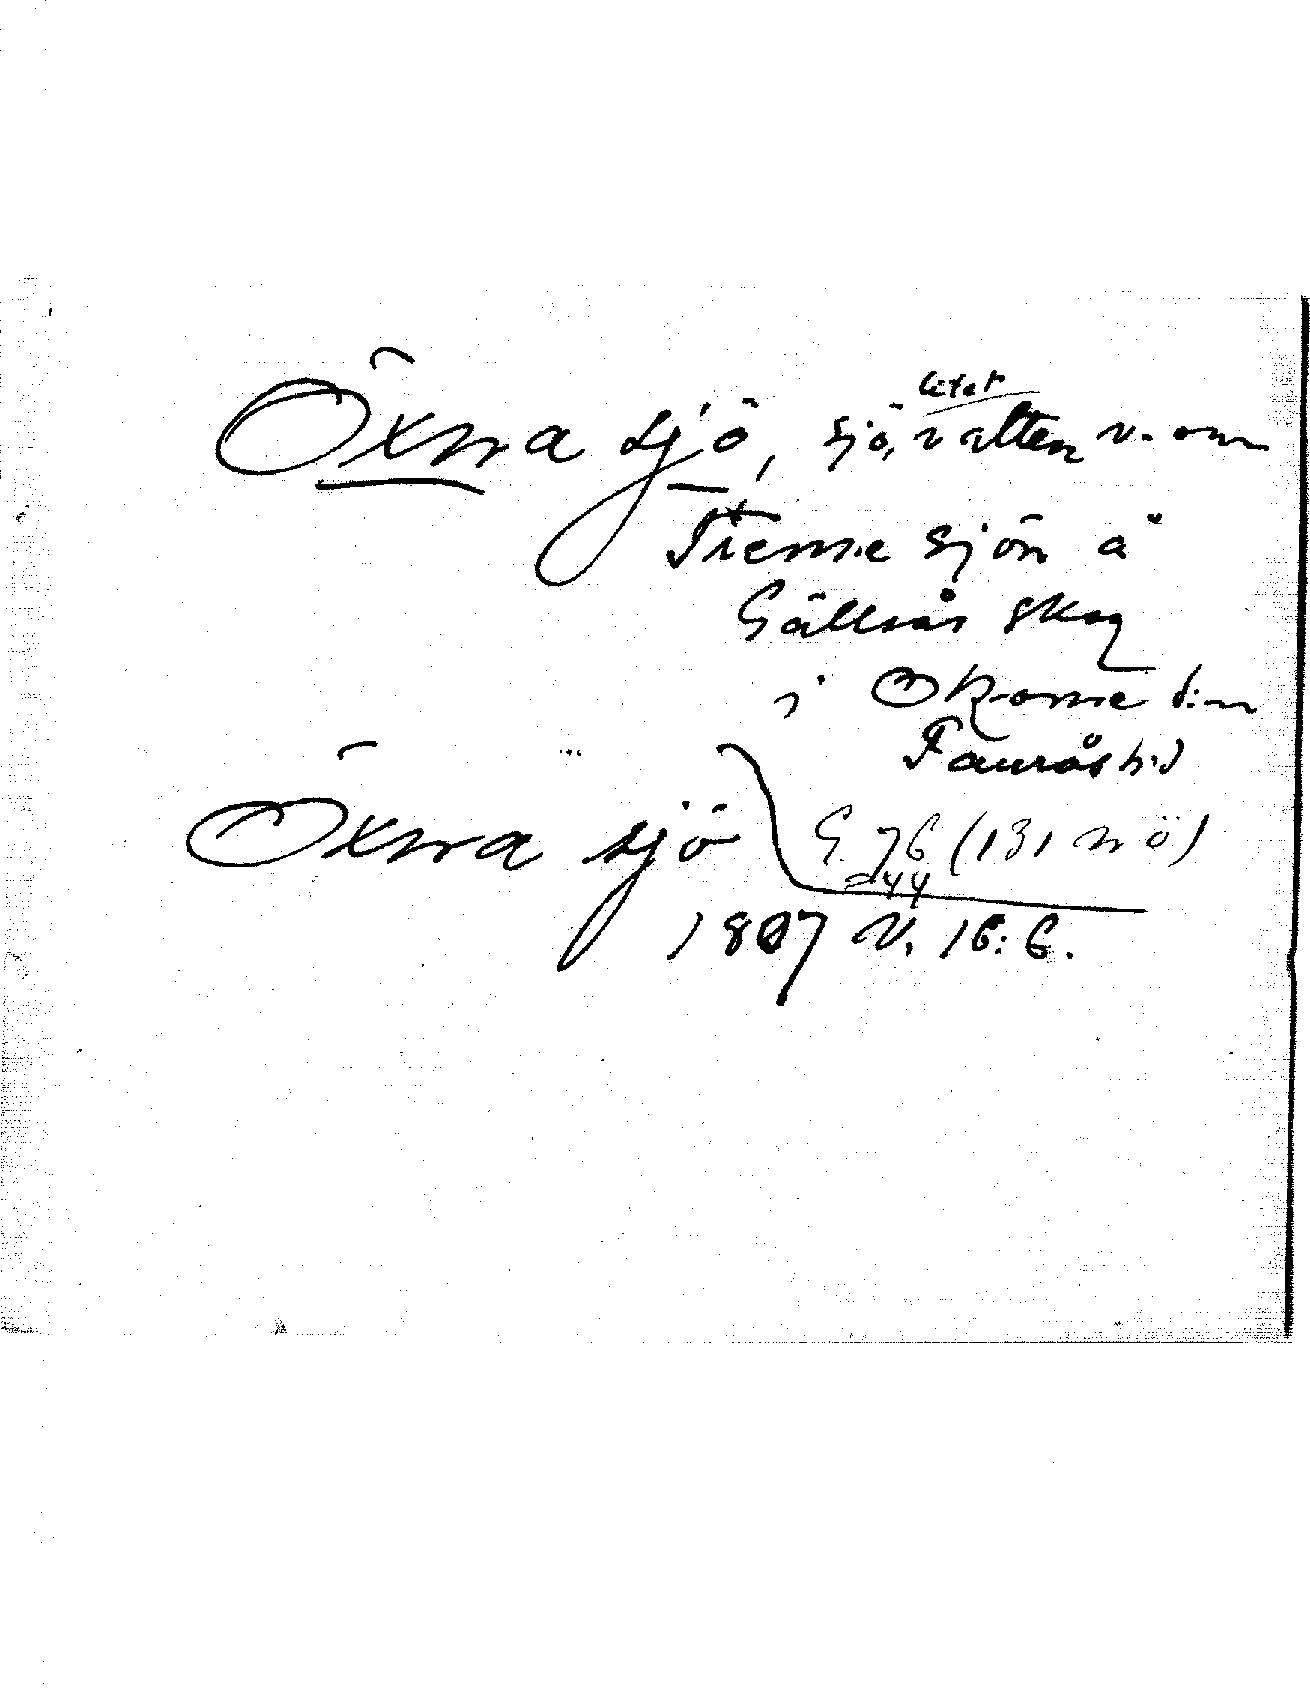 Öxna sjö, sjö, vatten v. om
Tremme sjön å
Gällsås skog
i Okome s:n
Faurås h:d
Öxna sjö
G. 76 (131 nö)
244
1807 V. 16:6.